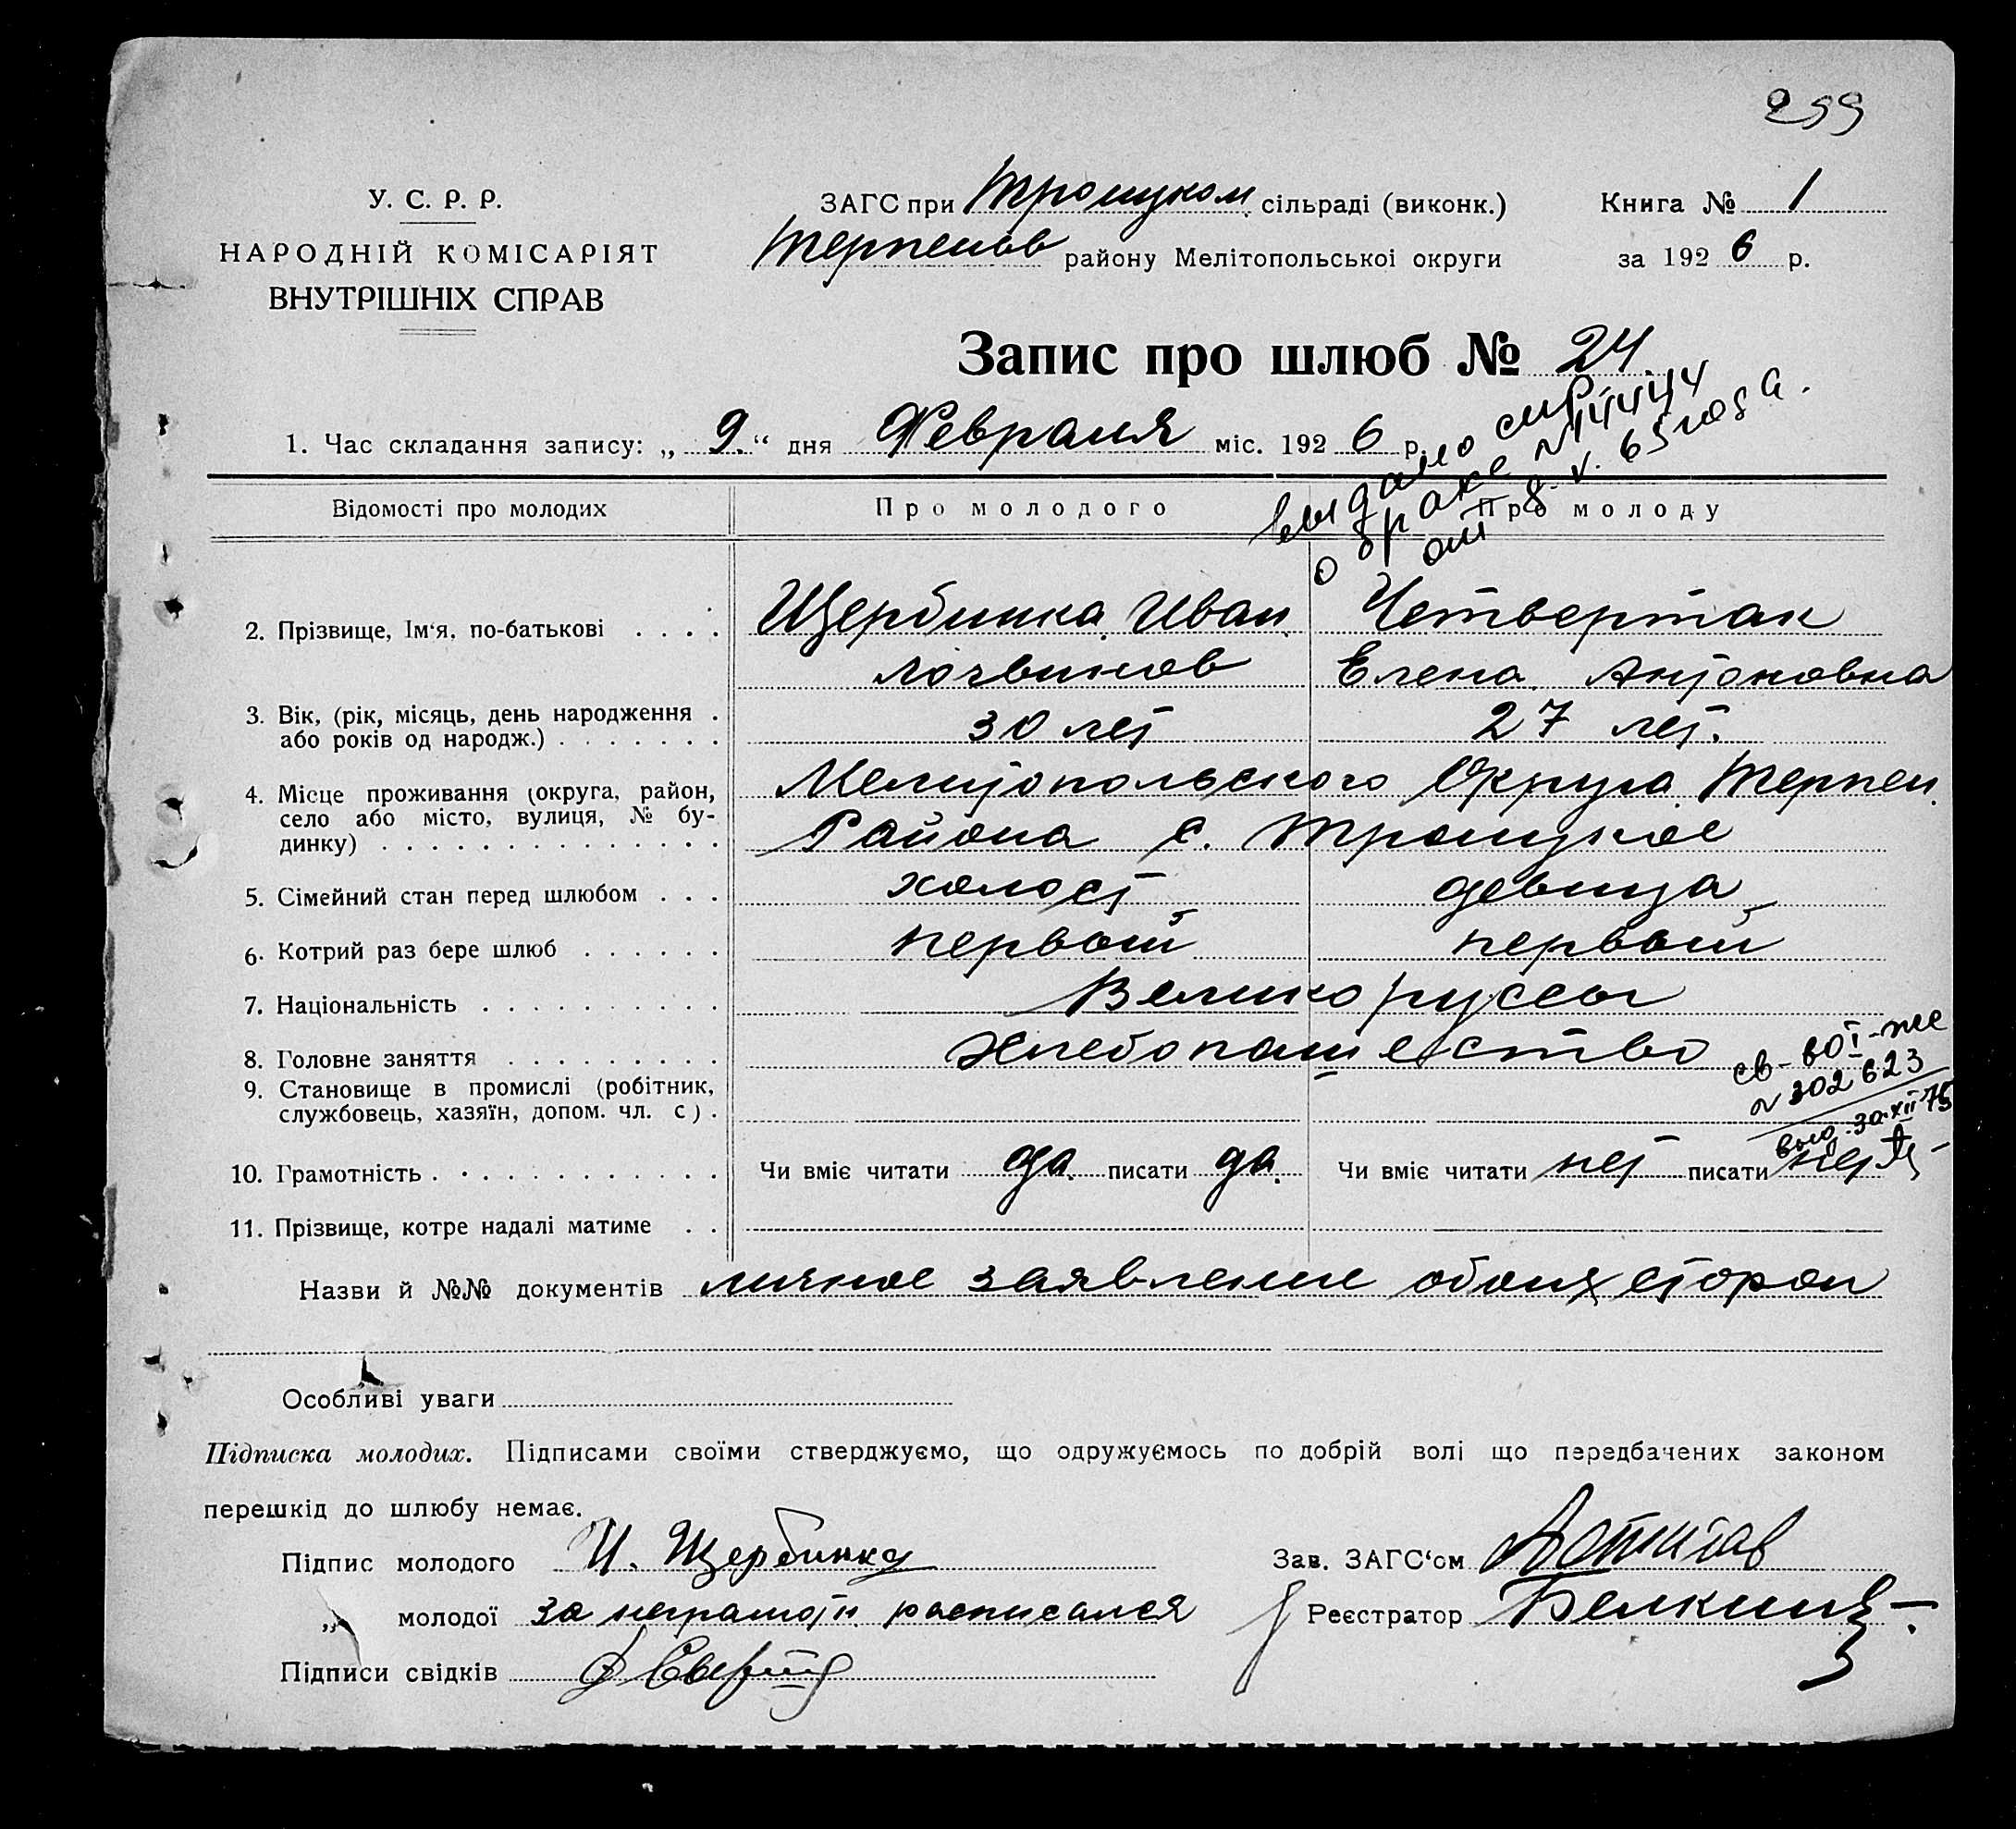 299
У. С. Р. Р.
НАРОДНІЙ КОМІСАРІЯТ
ВНУТРІШНІХ СПРАВ
ЗАГС при Троицком сільраді (виконк.)
Терпеньев району Мелітопольської округи
Книга № 1
за 1926 р.
Запис про шлюб № 24.
1. Час складання запису: „ 9. “ дня Февраля міс. 1926 р.
выдано
о браке №
от 8. V. 65 года.
Відомості про молодих Про молодого Про молоду
2. Прізвище, Ім‘я, по-батькові . . . . Щербинка Иван Четвертак
Логвинов Елена Антоновна
3. Вік, (рік, місяць, день народження . 30 лет 27 лет.
або років од народж.) . . . . . . .
4. Місце проживання (округа, район, Мелитопольского Округа Терпен.
село або місто, вулиця, № бу- Района с. Троицкое
динку) . . . . . . . . . . . . . .
5. Сімейний стан перед шлюбом . . . холост девица
6. Котрий раз бере шлюб . . . . . . первый первый
7. Національність . . . . . . . . . Великоруссы
8. Головне заняття . . . . . . . . Хлебопашество
9. Становище в промислі (робітник,
службовець, хазяїн, допом. чл. с) .
№ 302623
10. Грамотність . . . . . . . . . . . Чи вміє читати да писати да. Чи вміє читати нет писати нет
11. Прізвище, котре надалі матиме . .
Назви й №№ документів личное заявление обоих сторон
Особливі уваги
Підписка молодих. Підписами своїми стверджуємо, що одружуємось по добрій волі що передбачених законом
перешкід до шлюбу немає.
Підпис молодого И. Щербинка
Зав. ЗАГС‘ом
„ молодої за неграмотн. расписался
Реєстратор Белкин
Підписи свідків